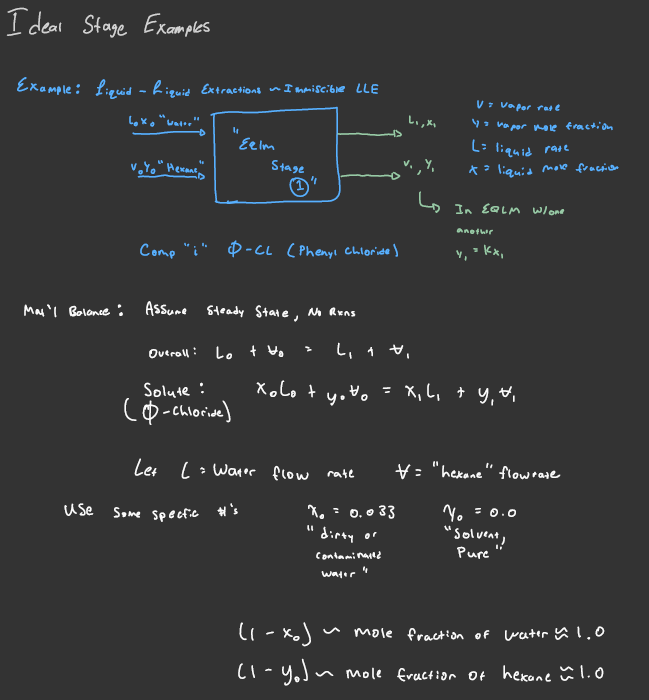 Ideal Stage Examples
Example: Liquid - Liquid Extractions ~ Immiscible LLE
L₀X₀ "Water"
V₀Y₀ "Hexane"
"Eqlm
Stage
①"
L₁, x₁
V₁, Y₁
V = vapor rate
Y = vapor mole fraction
L = liquid rate
X = liquid mole fraction
In EQLM w/one
another
y₁ = Kx₁
Comp "i" Φ-CL (Phenyl Chloride)
Mat'l Balance: Assume Steady State, No Rxns
Overall: L₀ + V₀ = L₁ + V₁
Solute: x₀L₀ + y₀V₀ = x₁L₁ + y₁V₁
(Φ-Chloride)
Let L = Water flow rate V = "hexane" flowrate
Use some specfic #'s
x₀ = 0.033
"dirty or
contaminated
water"
y₀ = 0.0
"Solvent,
Pure"
(1 - x₀) ~ mole fraction of water ≈ 1.0
(1 - y₀) ~ mole fraction of hexane ≈ 1.0